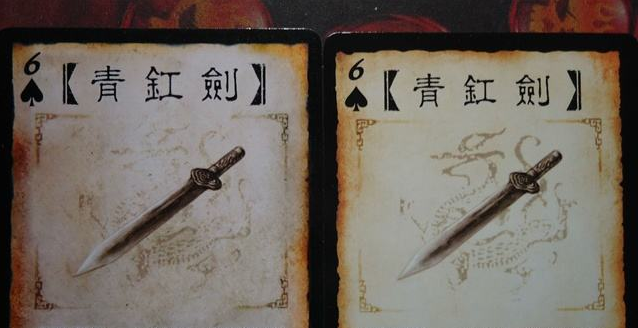 6
【青釭劍】
6
【青釭劍】